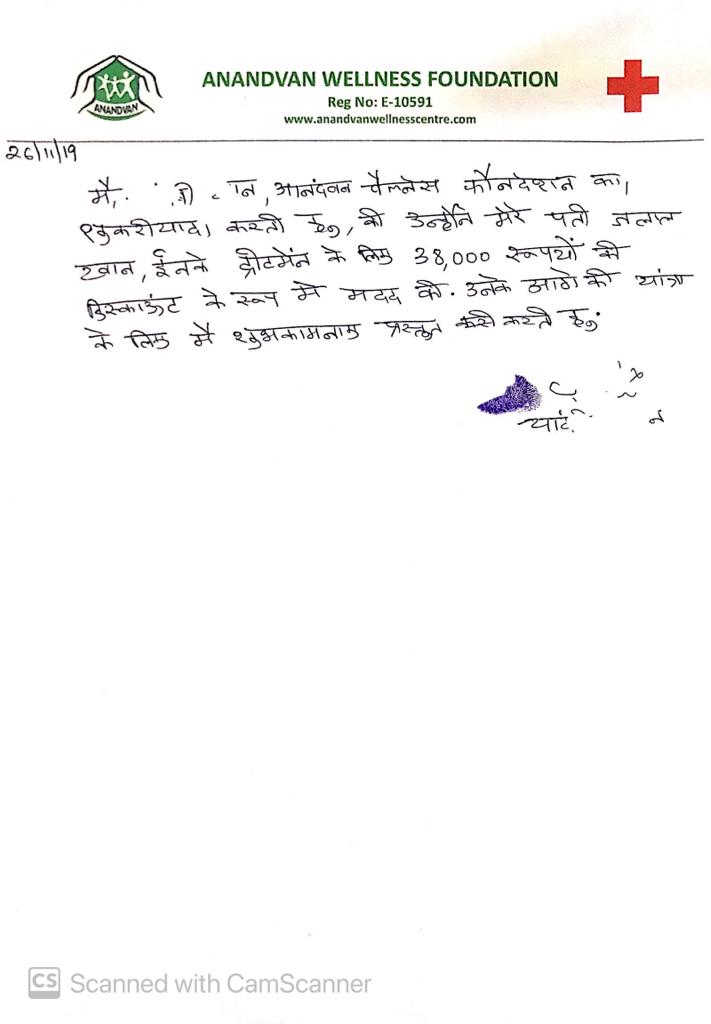 ANANDVAN
ANANDVAN WELLNESS FOUNDATION
Reg No: E-10591
www.anandvanwellnesscentre.com
26/11/19
मै, आनंदवन वैलनेस फौनदेशन का,
शुकरीयादा करती हुं, की उन्होंने मेरे पती जलाल
खान, ईनके ट्रीटमेंन के लिए 38,000 रूपयों की
डिस्काऊंट के रूप मे मदद की. उनके आगे की यांत्रा
के लिए मै शुभकामनाए प्रस्तुत करती हुं.
CS Scanned with CamScanner